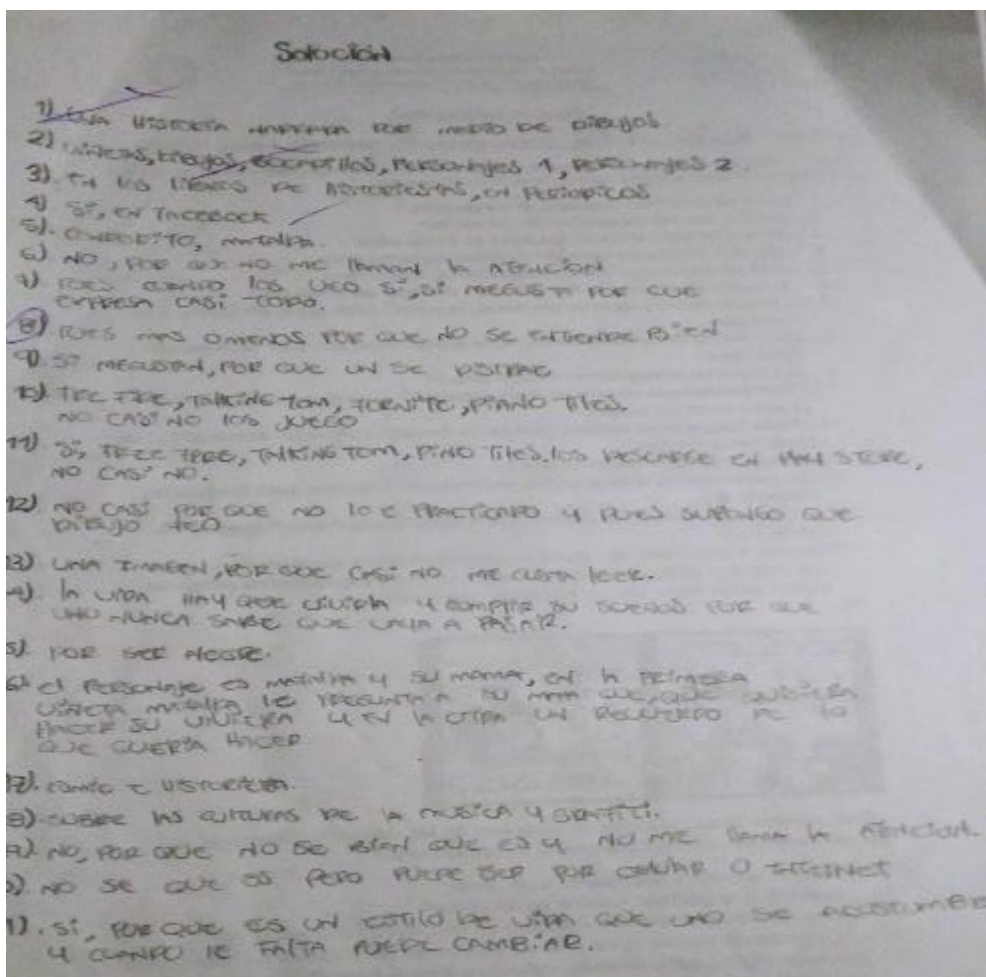 Solución
1) Una HISTORIA NARRADA POR MEDIO DE DIBUJOS
2) VIÑETAS, DIBUJOS, BOCADILLOS, PERSONAJES 1, PERSONAJES 2
3). EN LOS LIBROS DE, EN PERIODICOS
4) SÍ, EN FACEBOOK
5). CONDORITO, MAFALDA.
6) NO, POR QUE NO ME LLAMAN LA ATENCION
7) PUES CUANDO LOS USO SÍ, SÍ MEGUSTA POR QUE
EXPRESA CASI TODO.
8) PUES MAS OMENOS POR QUE NO SE ENTIENDE BIEN
9). SÍ MEGUSTAN, POR QUE UN SE DISTRAE
10) FREE FIRE, TALKING TOM, FORNITE, PIANO TILES.
NO CASI NO LOS JUEGO
11) SÍ, FREE FREE, TALKING TOM, PINO TILES. LOS DESCARGE EN PLAY STORE,
NO CASI NO.
12) NO CASI POR QUE NO LO E PRACTICADO Y PUES SUPONGO QUE
DIBUJO FEO
13) UNA IMAGEN, POR QUE CASI NO ME GUSTA LEER.
4) la VIDA HAY QUE VIVIRLA Y CUMPLIR SU SUEÑOS POR QUE
UNO NUNCA SABE QUE VALLA A PASAR.
5). POR SER ALEGRE.
6) el PERSONAJE ES MAFALDA Y SU MAMA, EN la PRIMERA
VIÑETA MAFALDA LE PREGUNTA A SU MAMA QUE, QUE QUISIERA
HACER SU VIVIERA Y EN LA OTRA UN RECUERDO DE LO
QUE QUERIA HACER.
17). COMIC E HISTORIETA.
8) SOBRE LAS CULTURAS DE LA MUSICA Y GRAFITI.
9) NO, POR QUE NO SE BIEN QUE ES Y NO ME LLAMA LA ATENCION.
) NO SE QUE ES PERO PUEDE SER POR CELULAR O INTERNET
1). SÍ, POR QUE ES UN ESTILO DE VIDA QUE UNO SE ACOSTUMBRE
Y CUANDO LE FALTA PUEDE CAMBIAR.